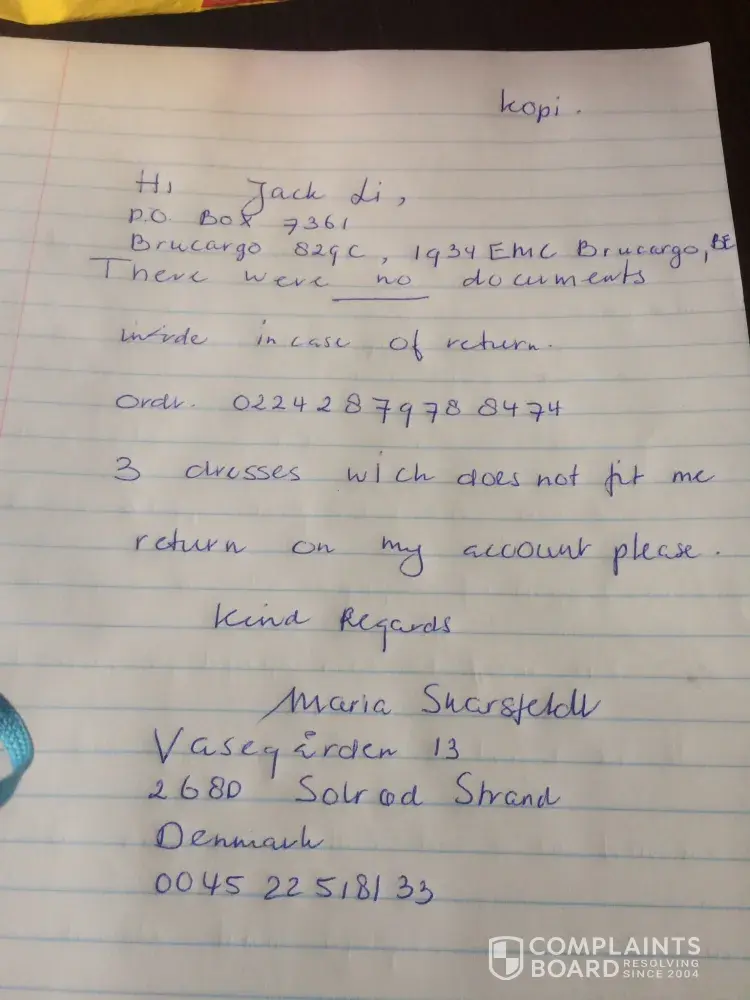 kopi.
Hi Jack Li,
P.O. Box 7361
Brucargo 829C, 1934 EMC Brucargo, BE
There were no documents
inside in case of return.
Ordr. 0224287978 8474
3 dresses wich does not fit me
return on my account please.
Kind Regards
Maria Skarsfeldt
Vasegården 13
2680 Solrød Strand
Denmark
0045 22 51 81 33
COMPLAINTS
BOARD RESOLVING SINCE 2004